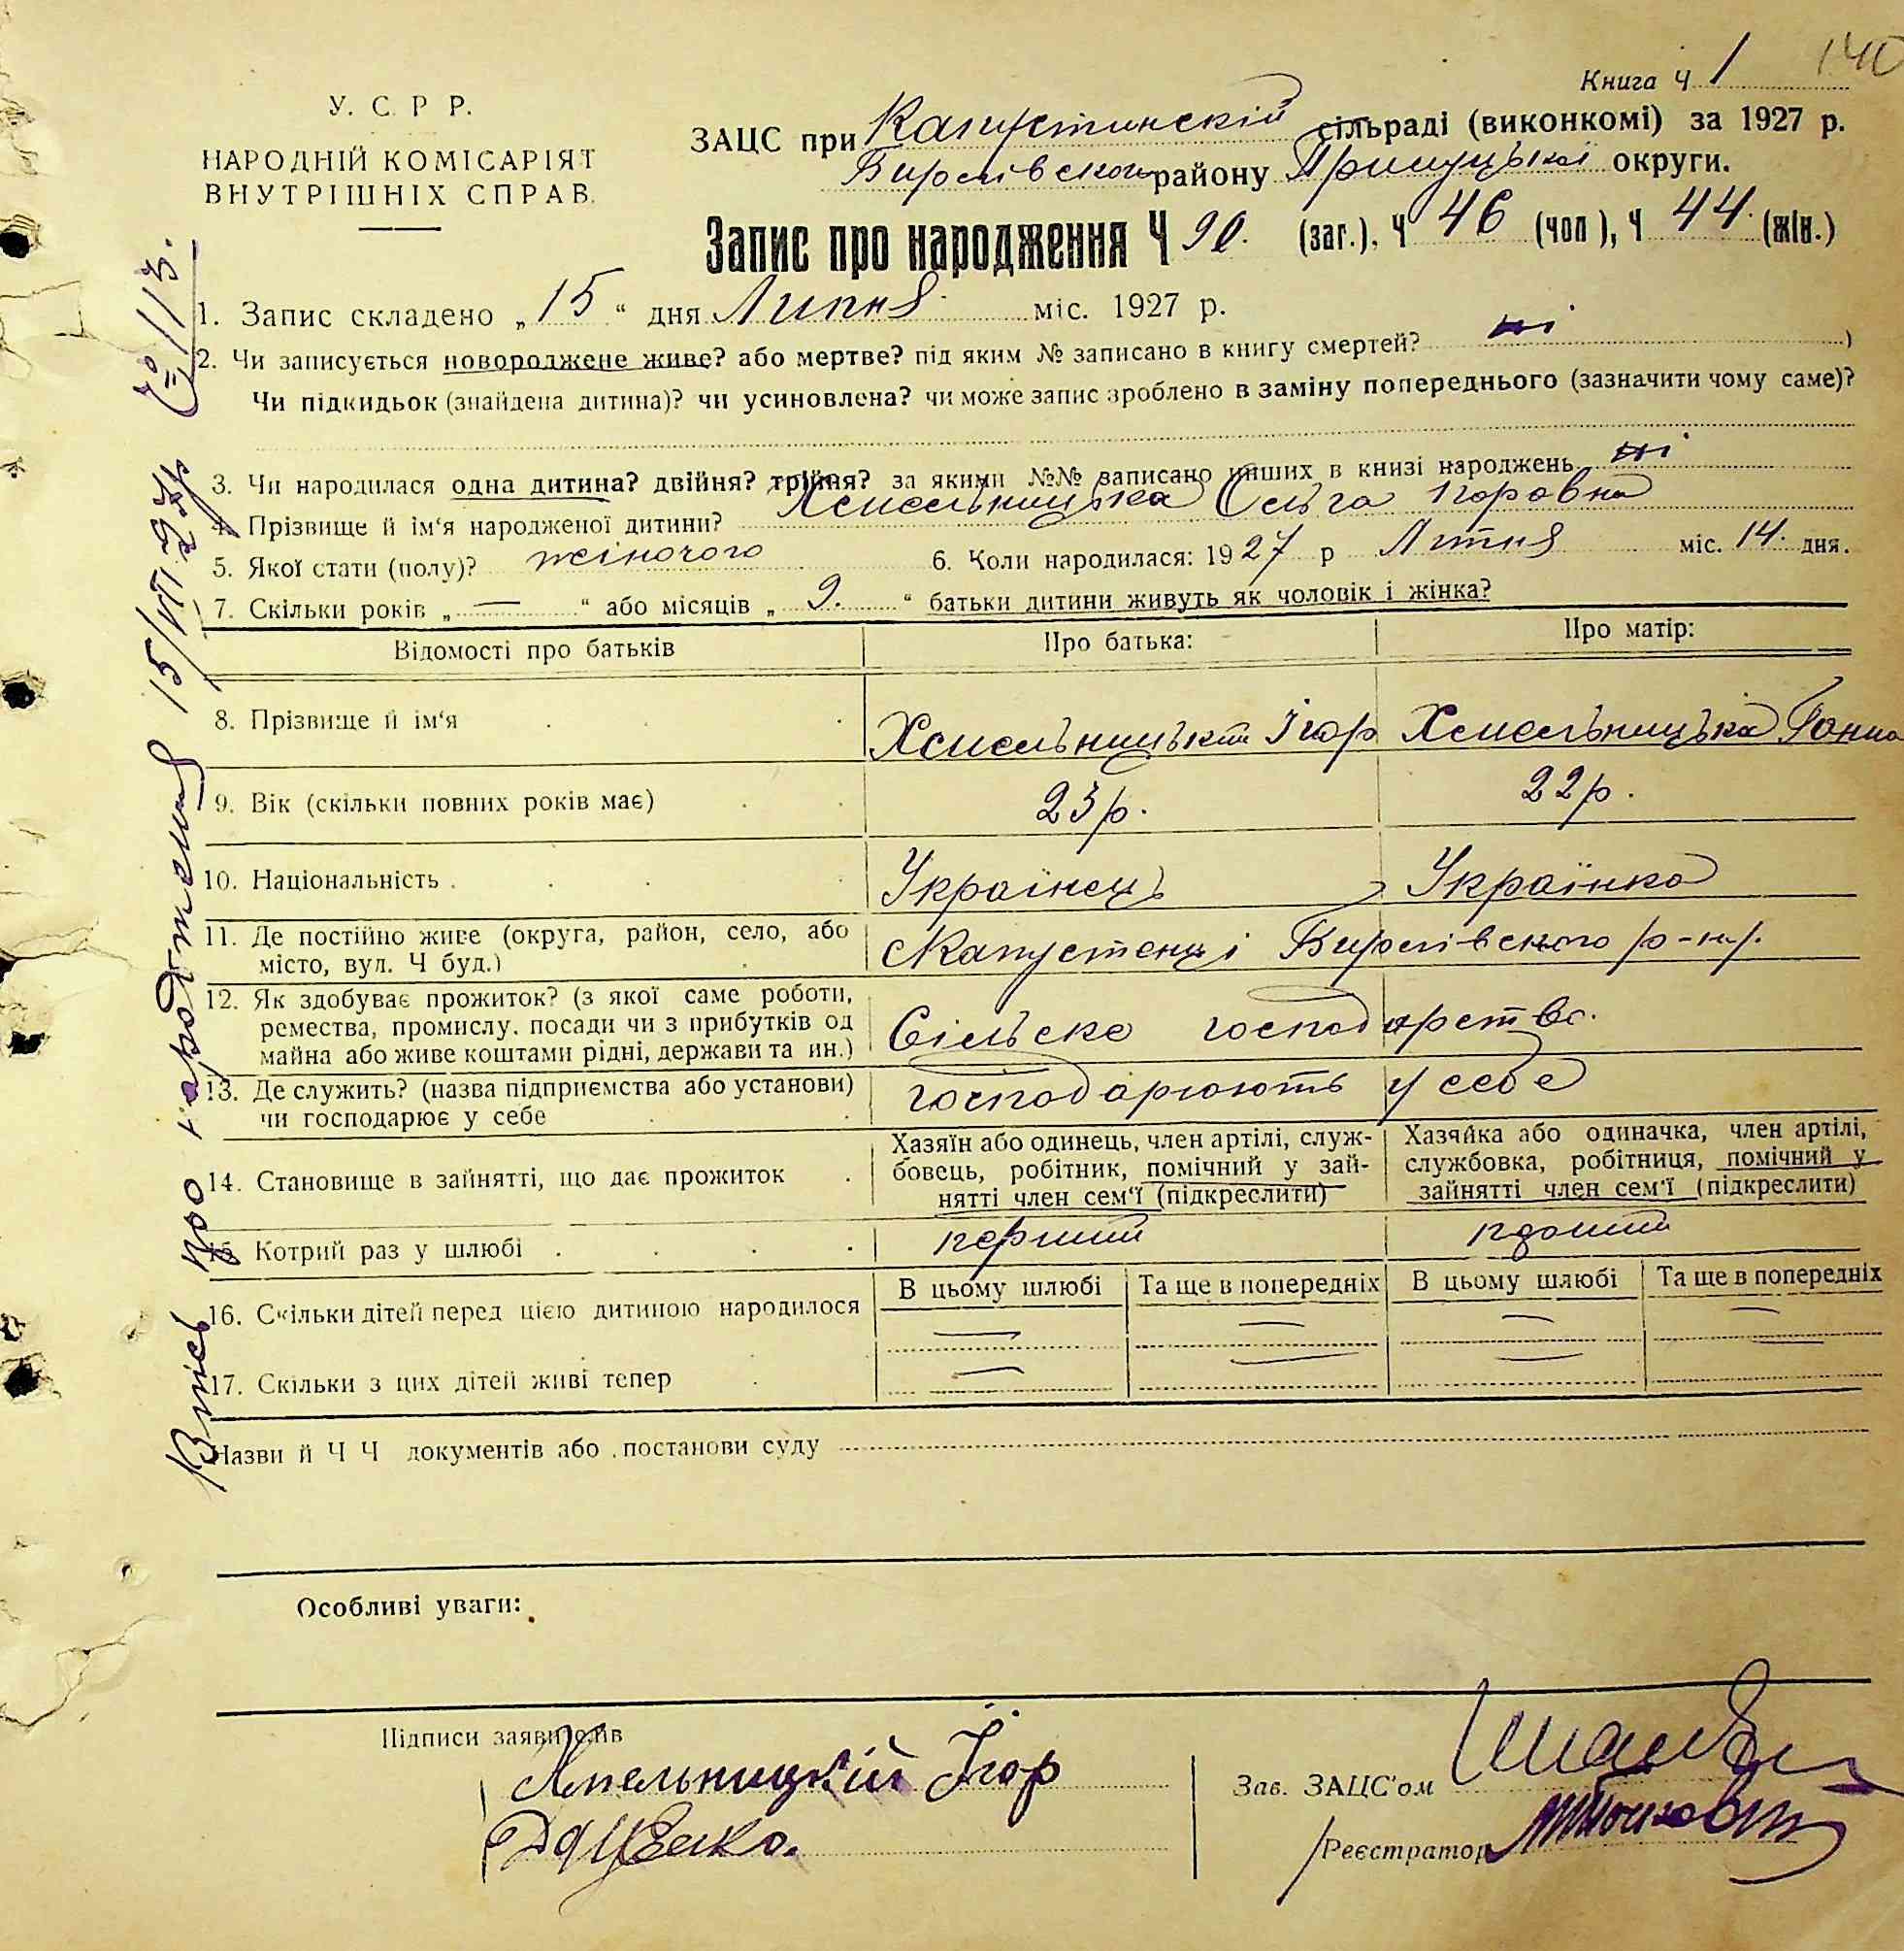 Книга Ч 1
140
У. С. Р Р.
НАРОДНІЙ КОМІСАРІЯТ
ВНУТРІШНІХ СПРАВ.
ЗАЦС при Капустинскій сільраді (виконкомі) за 1927 р.
району Прилуцької округи.
Запис про народження Ч 90. (заг.), Ч 46 (чол), Ч 44. (жін.)
1. Запис складено „15“ дня Липня міс. 1927 р.
2. Чи записується новороджене живе? або мертве? під яким № записано в книгу смертей? ні
Чи підкидьок (знайдена дитина)? чи усиновлена? чи може запис зроблено в заміну попереднього (зазначити чому саме)?
3. Чи народилася одна дитина? двійня? трійня? за якими №№ записано инших в книзі народжень ні
4. Прізвище й ім'я народженої дитини? Хмельницька Ольга Ігоровна
5. Якої стати (полу)? жіночого 6. Коли народилася: 1927 р Липня міс. 14. дня.
7. Скільки років „—“ або місяців „9.“ батьки дитини живуть як чоловік і жінка?
Відомості про батьків Про батька: Про матір:
8. Прізвище й ім'я Хмельницький Ігор Хмельницька Ганна
9. Вік (скільки повних років має) 23 р. 22 р.
10. Національність Українець Українка
11. Де постійно живе (округа, район, село, або
місто, вул. Ч буд.) Капустенці р-ну.
12. Як здобуває прожиток? (з якої саме роботи,
ремества, промислу, посади чи з прибутків од
майна або живе коштами рідні, держави та ин.) Сільске господарство.
13. Де служить? (назва підприємства або установи)
чи господарює у себе господарюють у себе
14. Становище в зайнятті, що дає прожиток
Хазяїн або одинець, член артілі, служ-
бовець, робітник, помічний у зай-
нятті член сем'ї (підкреслити)
Хазяйка або одиначка, член артілі,
службовка, робітниця, помічний у
зайнятті член сем'ї (підкреслити)
15. Котрий раз у шлюбі перший
В цьому шлюбі Та ще в попередніх В цьому шлюбі Та ще в попередніх
16. Скільки дітей перед цією дитиною народилося — — — —
17. Скільки з цих дітей живі тепер — — — —
Назви й Ч Ч документів або постанови суду
Особливі уваги:
Підписи заявителів
Хмельницкій Ігор
Даценко.
Зав. ЗАЦС'ом
Реєстратор
Впись про народження 15/VII 27 р. Ч 113.